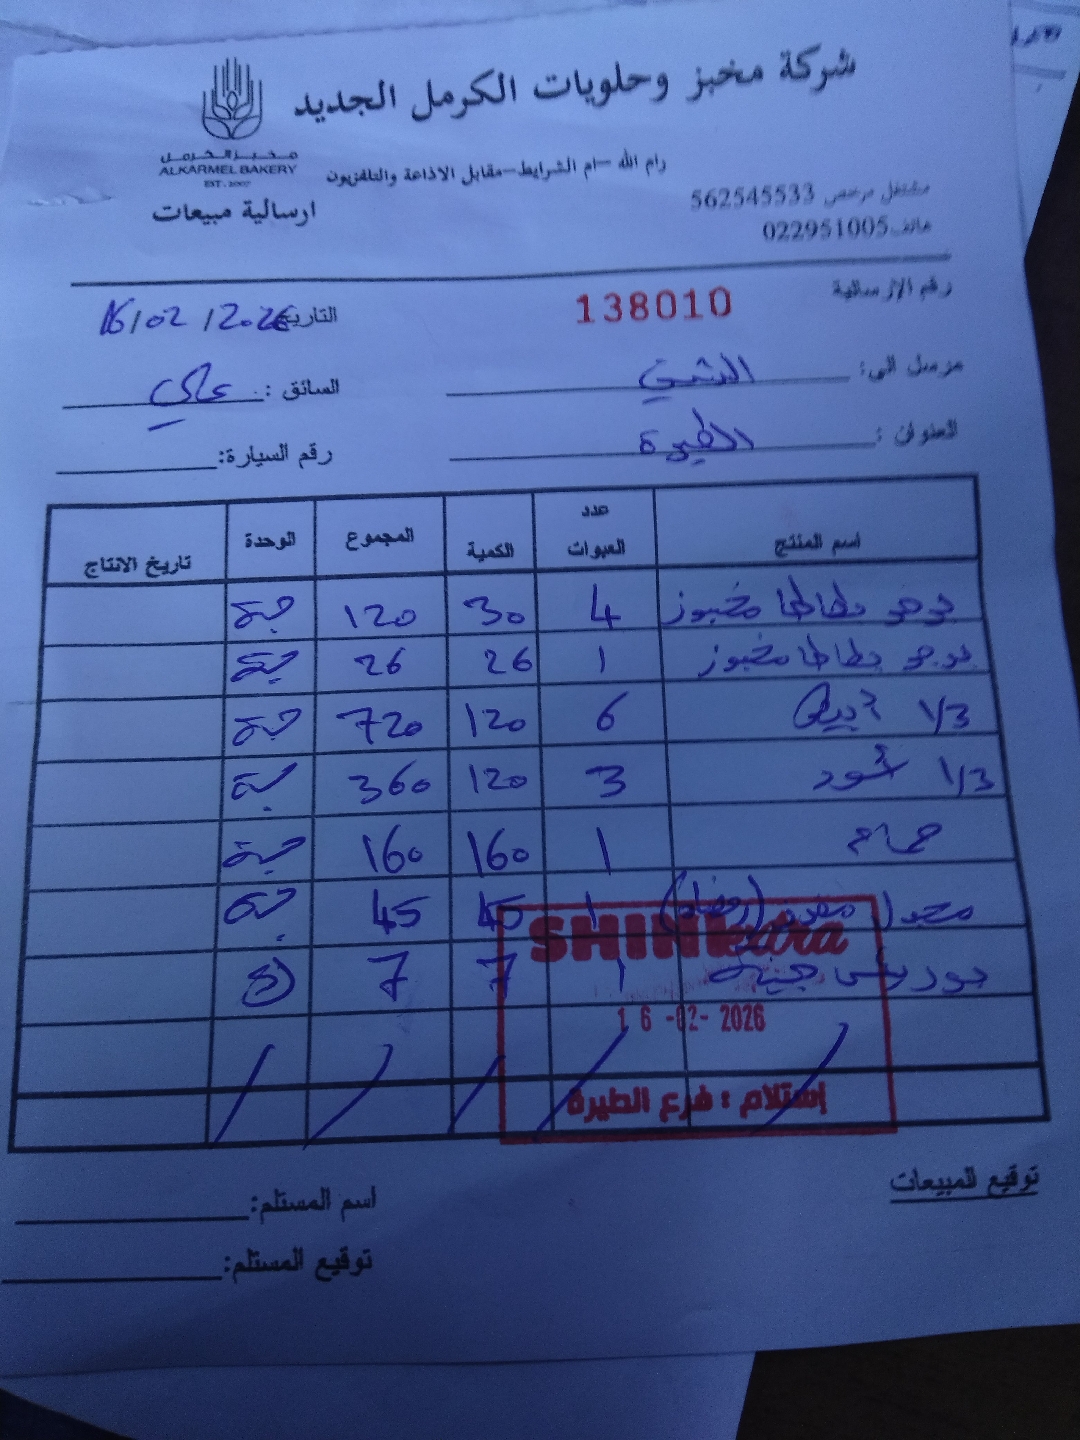 شركة مخبز وحلويات الكرمل الجديد
مخبز الكرمل
ALKARMEL BAKERY
EST. 2007
رام الله -ام الشرايط-مقابل الاذاعة والتلفزيون
مشتغل مرخص 562545533
هاتف 022951005
ارسالية مبيعات
رقم الارسالية 138010
التاريخ 16/02/2026
مرسل الى:
السائق :
العنوان : الطيرة
رقم السيارة:
اسم المنتج عدد العبوات الكمية المجموع الوحدة تاريخ الانتاج
بطاطا مخبوز 4 30 120 حبة
بطاطا مخبوز 1 26 26 حبة
1/3 6 120 720 حبة
1/3 3 120 360 حبة
حمام 1 160 160 حبة
(رمضان) 1 45 45 حبة
جبنة 1 7 7
SHINI extra
16-02-2026
إستلام : فرع الطيرة
توقيع المبيعات
اسم المستلم:
توقيع المستلم: